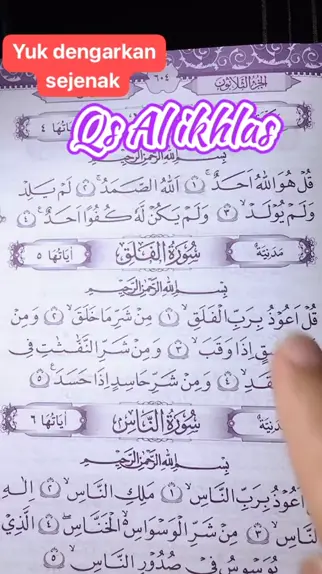 Yuk dengarkan
sejenak
٦٠٤
الجزء الثلاثون
Qs Al ikhlas
اٰيَاتُهَا ٤
بِسْمِ اللّٰهِ الرَّحْمٰنِ الرَّحِيْمِ
قُلْ هُوَ اللّٰهُ اَحَدٌۚ ١ اَللّٰهُ الصَّمَدُۚ ٢ لَمْ يَلِدْ
وَلَمْ يُوْلَدْۙ ٣ وَلَمْ يَكُنْ لَّهٗ كُفُوًا اَحَدٌ ٤
مَدَنِيَّةٌ سُوْرَةُ الْفَلَقِ اٰيَاتُهَا ٥
بِسْمِ اللّٰهِ الرَّحْمٰنِ الرَّحِيْمِ
قُلْ اَعُوْذُ بِرَبِّ الْفَلَقِۙ ١ مِنْ شَرِّ مَا خَلَقَۙ ٢ وَمِنْ
اِذَا وَقَبَۙ ٣ وَمِنْ شَرِّ النَّفّٰثٰتِ فِى
٤ وَمِنْ شَرِّ حَاسِدٍ اِذَا حَسَدَ ٥
مَدَنِيَّةٌ سُوْرَةُ النَّاسِ اٰيَاتُهَا ٦
بِسْمِ اللّٰهِ الرَّحْمٰنِ الرَّحِيْمِ
اَعُوْذُ بِرَبِّ النَّاسِۙ ١ مَلِكِ النَّاسِۙ ٢ اِلٰهِ
النَّاسِۙ ٣ مِنْ شَرِّ الْوَسْوَاسِ ەۙ الْخَنَّاسِۖ ٤ الَّذِيْ
يُوَسْوِسُ فِيْ صُدُوْرِ النَّاسِۙ ٥